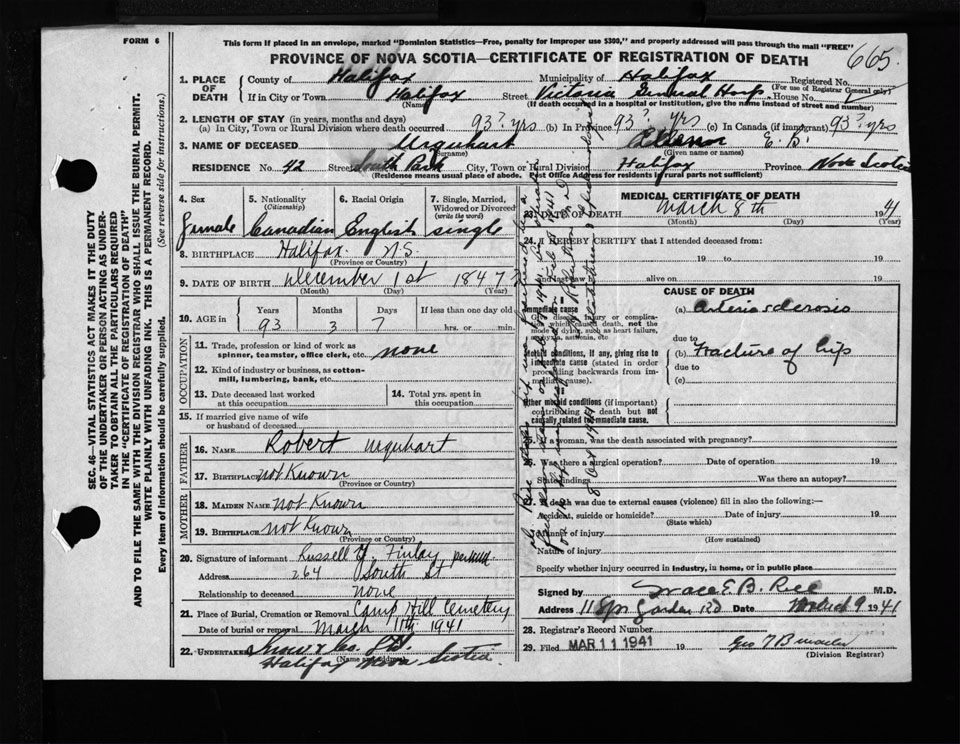 FORM 6
This form if placed in an envelope, marked "Dominion Statistics—Free, penalty for improper use $300," and properly addressed will pass through the mail "FREE"
PROVINCE OF NOVA SCOTIA—CERTIFICATE OF REGISTRATION OF DEATH
665.
1. PLACE OF DEATH
County of Halifax Municipality of Halifax Registered No.
(For use of Registrar General only)
If in City or Town Halifax Street Victoria General Hosp. House No.
(Name) (If death occurred in a hospital or institution, give the name instead of street and number)
2. LENGTH OF STAY (in years, months and days)
(a) In City, Town or Rural Division where death occurred 93? yrs (b) In Province 93? yrs (c) In Canada (if immigrant) 93? yrs
3. NAME OF DECEASED Urquhart Eleanor E. B.
(Surname) (Given name or names)
RESIDENCE No. 42 Street South Park City, Town or Rural Division Halifax Province Nova Scotia
(Residence means usual place of abode. Post Office Address for residents of rural parts not sufficient)
4. Sex
Female
5. Nationality
(Citizenship)
Canadian
6. Racial Origin
English
7. Single, Married, Widowed or Divorced
(write the word)
single
8. BIRTHPLACE Halifax N.S.
(Province or Country)
9. DATE OF BIRTH December 1st 1847?
(Month) (Day) (Year)
10. AGE in
Years Months Days If less than one day old
93 3 7 hrs. or min.
OCCUPATION
11. Trade, profession or kind of work as
spinner, teamster, office clerk, etc. none
12. Kind of industry or business, as cotton-
mill, lumbering, bank, etc.
13. Date deceased last worked
at this occupation
14. Total yrs. spent in
this occupation
15. If married give name of wife
or husband of deceased
FATHER
16. NAME Robert Urquhart
17. BIRTHPLACE not Known
(Province or Country)
MOTHER
18. MAIDEN NAME not Known
19. BIRTHPLACE not Known
(Province or Country)
20. Signature of informant Russell Finlay
Address 264 South St
Relationship to deceased none
21. Place of Burial, Cremation or Removal Camp Hill Cemetery
Date of burial or removal March 11th 1941
22. UNDERTAKER Snow & Co. Ltd.
Halifax Nova Scotia
(Name and address)
MEDICAL CERTIFICATE OF DEATH
23. DATE OF DEATH March 8th 1941
(Month) (Day) (Year)
24. I HEREBY CERTIFY that I attended deceased from:
19 to 19
and last saw h alive on 19
CAUSE OF DEATH
Immediate cause
Give disease, injury or complica-
tion which caused death, not the
mode of dying, such as heart failure,
asphyxia, asthenia, etc
(a) Arteriosclerosis
due to
Morbid conditions, if any, giving rise to
immediate cause (stated in order
proceeding backwards from im-
mediate cause).
(b) Fracture of hip
due to
(c)
Other morbid conditions (if important)
contributing to death but not
causally related to immediate cause.
25. If a woman, was the death associated with pregnancy?
26. Was there a surgical operation? Date of operation 19
State findings Was there an autopsy?
27. If death was due to external causes (violence) fill in also the following:—
Accident, suicide or homicide? Date of injury 19
(State which)
Manner of injury
(How sustained)
Nature of injury
Specify whether injury occurred in industry, in home, or in public place
Signed by Grace E. B. Rice M.D.
Address 118 Spr Garden Rd Date March 9 1941
28. Registrar's Record Number
29. Filed MAR 11 1941 19
(Division Registrar)
SEC. 46—VITAL STATISTICS ACT MAKES IT THE DUTY
OF THE UNDERTAKER OR PERSON ACTING AS UNDER-
TAKER TO OBTAIN ALL THE PARTICULARS REQUIRED
IN THE "CERTIFICATE OF REGISTRATION OF DEATH"
AND TO FILE THE SAME WITH THE DIVISION REGISTRAR WHO SHALL ISSUE THE BURIAL PERMIT.
WRITE PLAINLY WITH UNFADING INK. THIS IS A PERMANENT RECORD.
Every item of information should be carefully supplied. (See reverse side for instructions.)